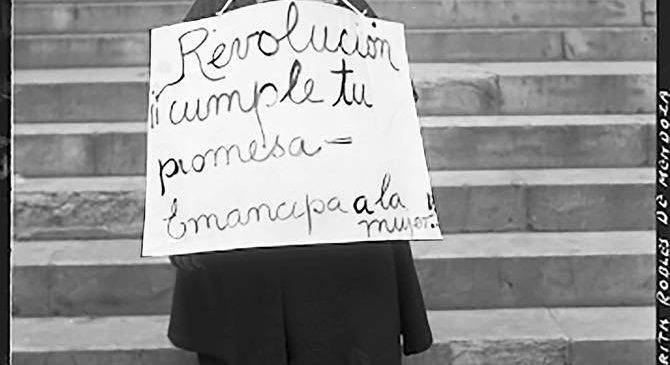 Revolución
¡¡cumple tu
promesa-
Emancipa a la
mujer!!
ROBLES DE MENDOZA